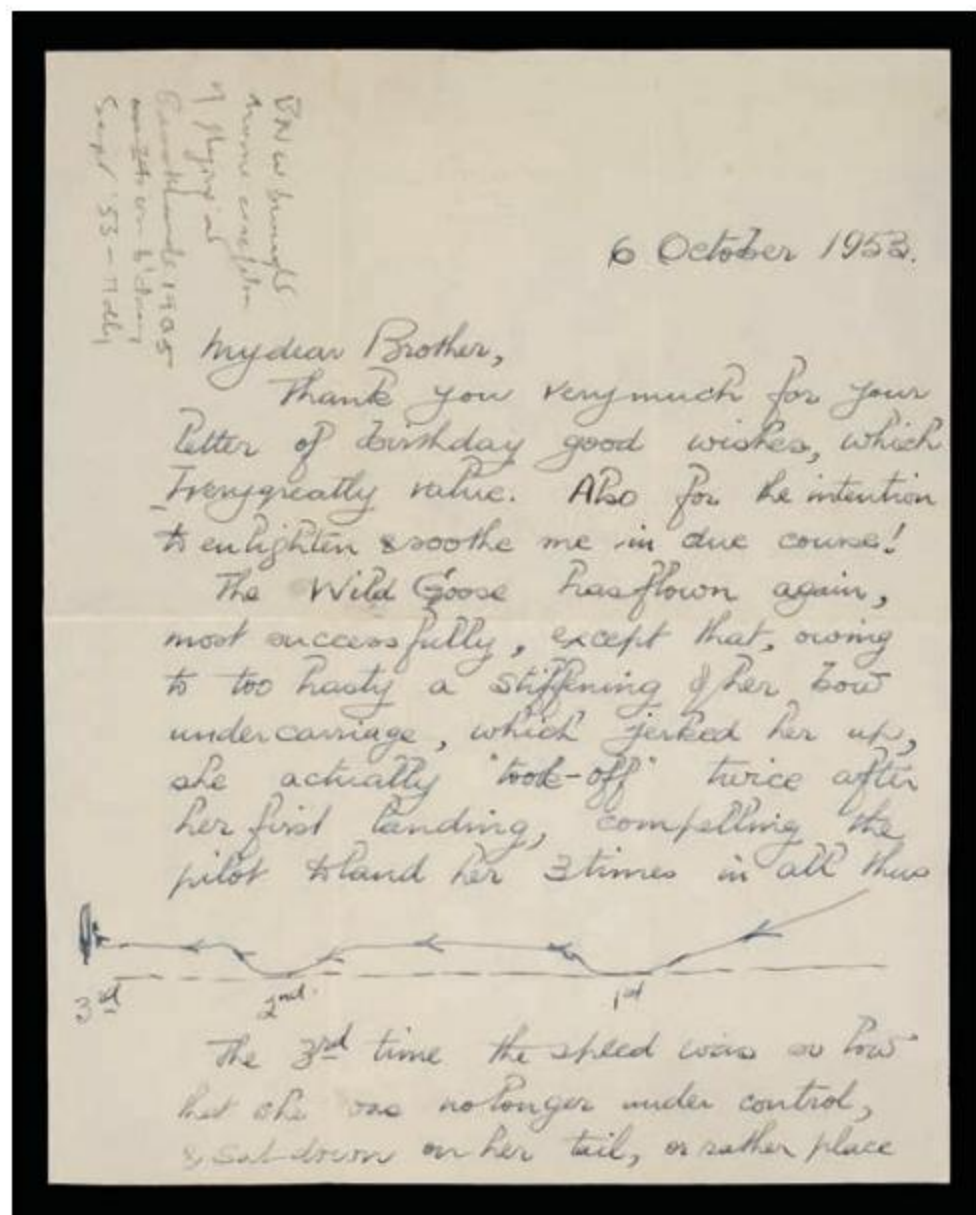 BNW brought
home
of flying at
Brooklands 1905
on b'day
Sept '53 - Molly
6 October 1953.
My dear Brother,
Thank you very much for your
letter of birthday good wishes, which
I very greatly value. Also for the intention
to enlighten & soothe me in due course!
The Wild Goose has flown again,
most successfully, except that, owing
to too hasty a stiffening of her bow
undercarriage, which jerked her up,
she actually "took-off" twice after
her first landing, compelling the
pilot to land her 3 times in all thus
3rd 2nd. 1st
The 3rd time the speed was so low
that she was no longer under control,
& sat down on her tail, or rather place